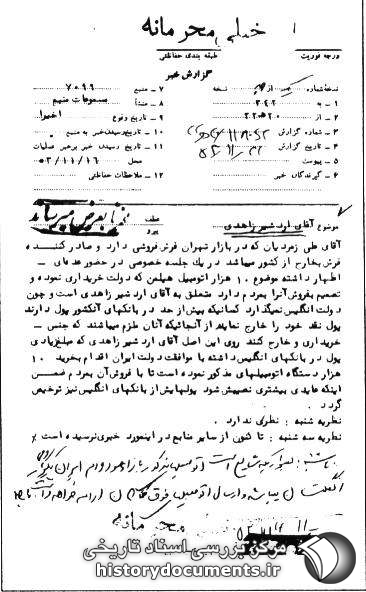 خیلی محرمانه
درجه فوریت
طبقه بندی حفاظتی
گزارش خبر
نسخه شماره از نسخه
۱ - به ۳۴۲
۲ - از ۲۰ ه ۲۲
۳ - شماره گزارش
۴ - تاریخ گزارش
۵ - پیوست
۶ - گیرندگان خبر
۷ - منبع ۷۰۹۹
۸ - منشأ مسموعات منبع
۹ - تاریخ وقوع اخیرا
۱۰ - تاریخ رسیدن خبر به منبع
۱۱ - تاریخ رسیدن خبر برهبر عملیات
محل ۵۳/۱۱/۱۶
۱۲ - ملاحظات حفاظتی
موضوع آقای اردشیر زاهدی
عطف
پیرو
بعرض میرساند
آقای علی زمردیان که در بازار تهران فرش فروشی دارد و صادر کننده
فرش بخارج از کشور میباشد در یک جلسه خصوصی در حضور عده‌ای
اظهار داشته موضوع ۱۰ هزار اتومبیل هیلمن که دولت خریداری نموده و
تصمیم بفروش آنرا بمردم دارد متعلق به آقای اردشیر زاهدی است و چون
دولت انگلیس نمیگذارد کسانیکه بیش از حد در بانکهای آنکشور پول دارند
پول نقد خود را خارج نمایند از آنجائیکه آنان ملزم میباشند که جنس
خریداری و خارج کنند روی این اصل آقای اردشیر زاهدی که مبلغ زیادی
پول در بانکهای انگلیس داشته با موافقت دولت ایران اقدام بخرید ۱۰
هزار دستگاه اتومبیلهای مذکور نموده است تا با فروش آن بمردم ضمن
اینکه عایدی بیشتری نصیبش شود پولهایش از بانکهای انگلیس نیز ترخیص
گردد
نظریه شنبه : نظری ندارد .
نظریه سه شنبه : تا کنون از سایر منابع در اینمورد خبری نرسیده است
محرمانه
مرکز بررسی اسناد تاریخی
historydocuments.ir